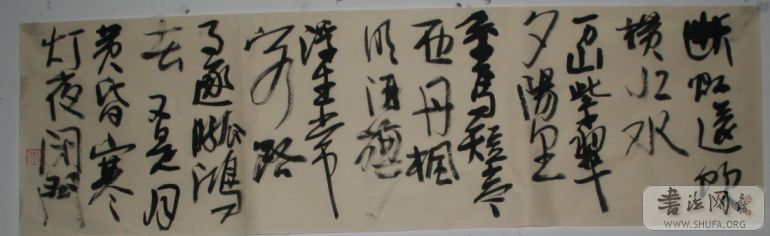 断虹遠飲
横江水
万山紫翠
夕陽里
系馬短亭
西丹楓
明酒旗
浮生常
客路
事逐孤鴻
去又是月
黄昏寒
灯夜闭門
書法网
WWW.SHUFA.ORG